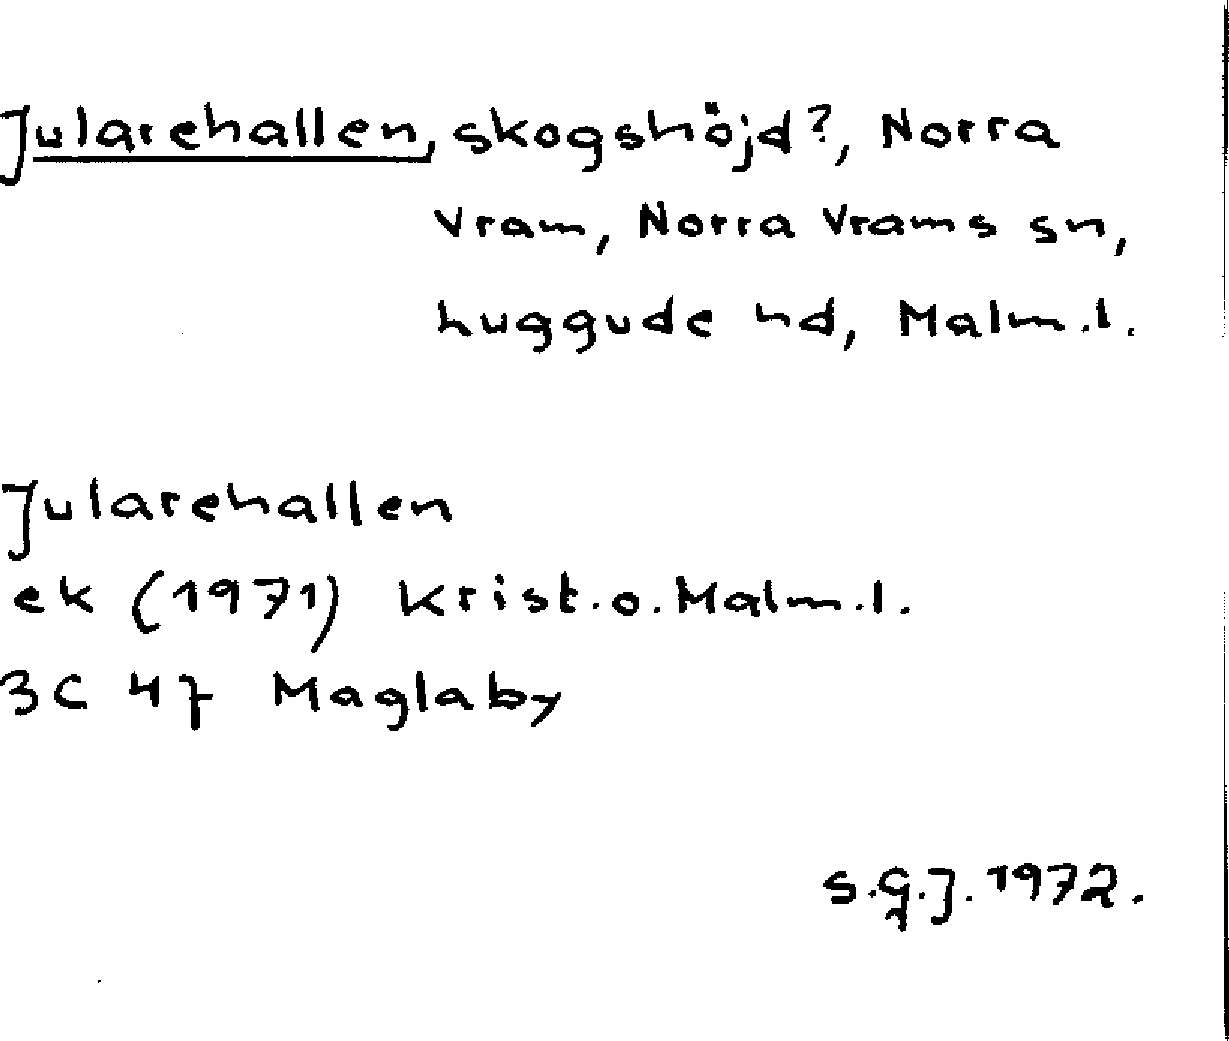 Jularehallen, skogshöjd?, Norra
Vram, Norra Vrams sn,
Luggude hd, Malm.l.
Jularehallen
ek (1971) Krist.o.Malm.l.
3C 47 Maglaby
S.G.J. 1972.